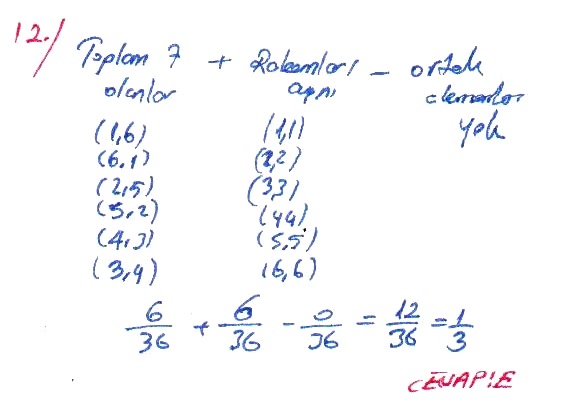 12./
Toplam 7 + Rakamları - ortak
olanlar aynı elemanlar
yok
(1,6) (1,1)
(6,1) (2,2)
(2,5) (3,3)
(5,2) (4,4)
(4,3) (5,5)
(3,4) (6,6)
6/36 + 6/36 - 0/36 = 12/36 = 1/3
CEVAP:E